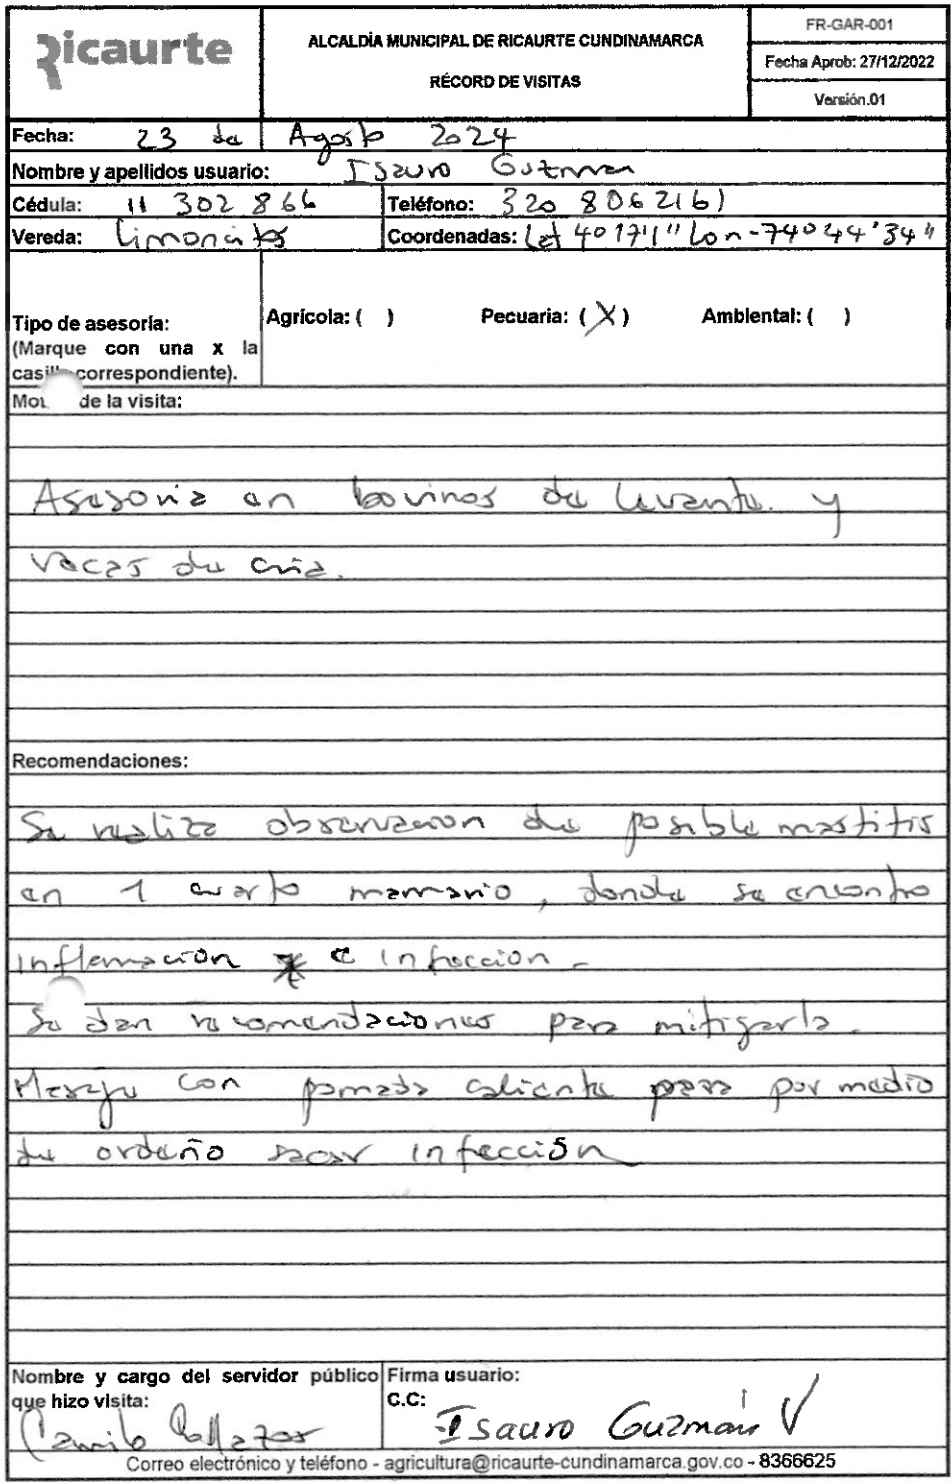 Ricaurte
ALCALDÍA MUNICIPAL DE RICAURTE CUNDINAMARCA
RÉCORD DE VISITAS
FR-GAR-001
Fecha Aprob: 27/12/2022
Versión.01
Fecha: 23 de Agosto 2024
Nombre y apellidos usuario: Isauro Guzman
Cédula: 11 302 866 Teléfono: 320 8062161
Vereda: Limoncitos Coordenadas: Lat 4°17'1" Lon-74°44'34"
Tipo de asesoría: Agrícola: ( ) Pecuaria: (X) Ambiental: ( )
(Marque con una x la
casilla correspondiente).
de la visita:
Asesoria en bovinos de levante y
vacas de cria.
Recomendaciones:
Se realiza observacion de posible mastitis
en 1 cuarto mamario, donde se encontro
inflamacion e infeccion.
Se dan recomendaciones para mitigarla.
Masaje con pomada caliente para por medio
de ordeño sacar infección
Nombre y cargo del servidor público
que hizo visita:
Camilo
Firma usuario:
C.C:
Isauro Guzmán V
Correo electrónico y teléfono - agricultura@ricaurte-cundinamarca.gov.co - 8366625